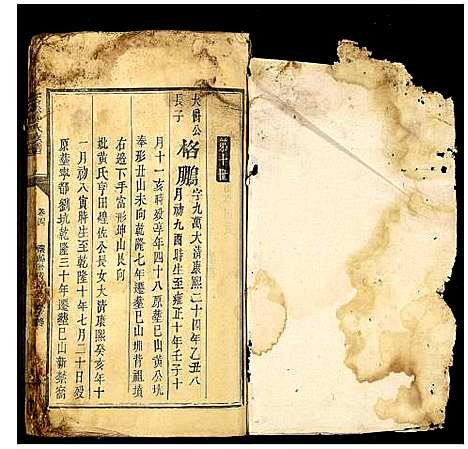 第十世
大爵公
長子
格鵬字九萬大清康熙二十四年乙丑八
月初九酉時生至雍正十年壬子十
月十一亥時歿享年四十八原葬巳山黄公坑
奉形丑山未向乾隆七年遷塟巳山坝背祖墳
右邊下手富形坤山艮向
批黄氏亨田煌佐公長女大清康熙癸亥年十
一月初八寅時生至乾隆十年七月二十日歿
原塟寧都劉坑乾隆三十年遷塟巳山新寨窩
卷四